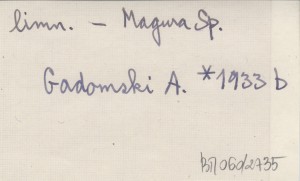 limn. – Magura Sp.
Gadomski A. *1933 b
BП060/2735